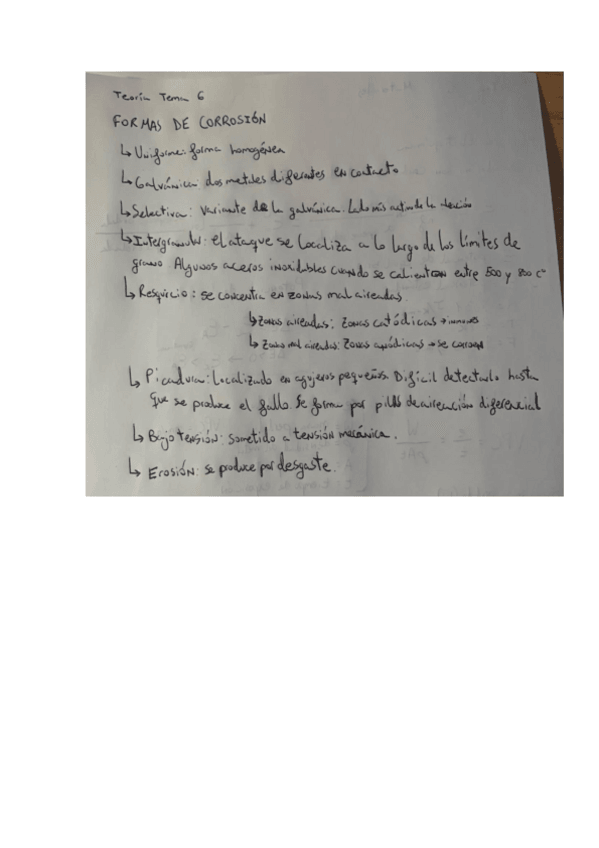 Teoría Tema 6
FORMAS DE CORROSIÓN
↳ Uniforme: forma homogénea
↳ Galvánica: dos metales diferentes en contacto
↳ Selectiva: Variante de la galvánica. Lado más activo de la aleación
↳ Intergranular: el ataque se localiza a lo largo de los límites de
grano. Algunos aceros inoxidables cuando se calientan entre 500 y 800 Cº
↳ Resquicio: se concentra en zonas mal aireadas.
↳ Zonas aireadas: Zonas catódicas → inmunes
↳ Zonas mal aireadas: Zonas anódicas → se corroen
↳ Picadura: Localizado en agujeros pequeños. Difícil detectarlo hasta
que se produce el fallo. Se forma por pilas de aireación diferencial
↳ Bajo tensión: sometido a tensión mecánica.
↳ Erosión: se produce por desgaste.